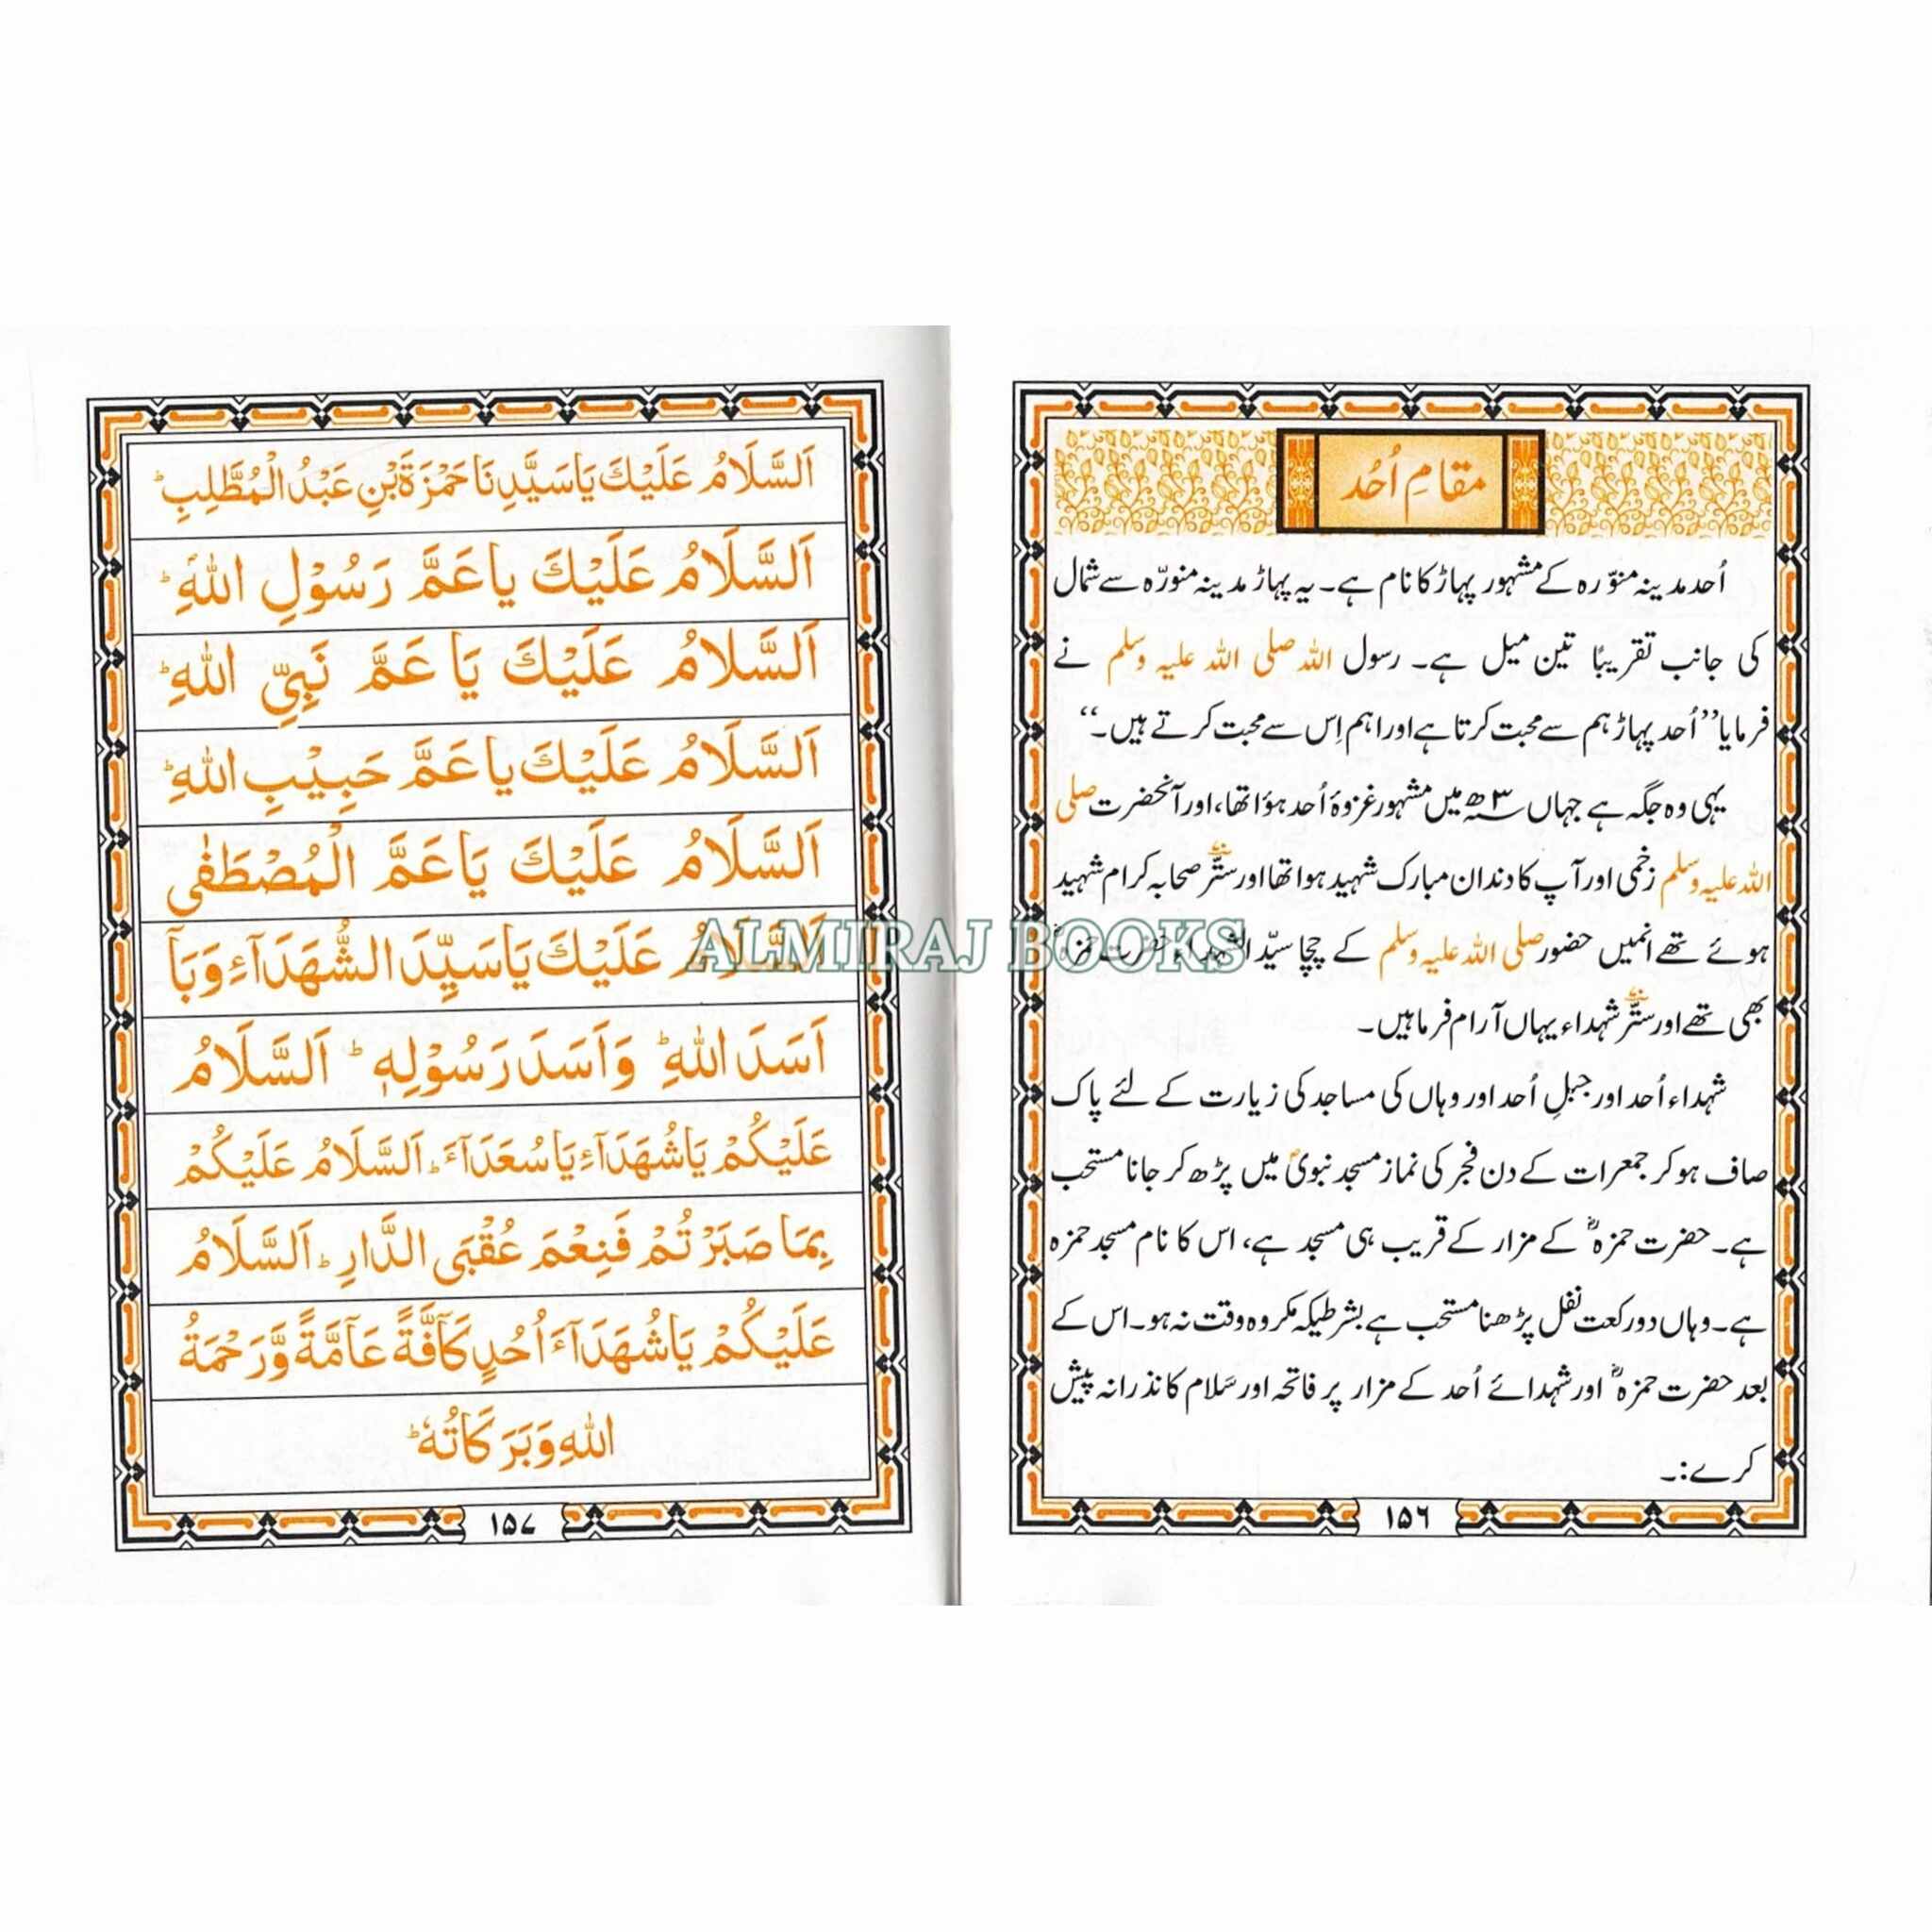 مقامِ اُحُد
اُحد مدینہ منوّرہ کے مشہور پہاڑ کا نام ہے۔ یہ پہاڑ مدینہ منورّہ سے شمال
کی جانب تقریباً تین میل ہے۔ رسول اللہ صلی اللہ علیہ وسلم نے
فرمایا ’’اُحد پہاڑ ہم سے محبت کرتا ہے اور اہم اِس سے محبت کرتے ہیں۔‘‘
یہی وہ جگہ ہے جہاں ۳ھ میں مشہور غزوۂ اُحد ہؤا تھا، اور آنحضرت صلی
اللہ علیہ وسلم زخمی اور آپ کا دندان مبارک شہید ہوا تھا اور ستّر صحابہ کرام شہید
ہوئے تھے انمیں حضور صلی اللہ علیہ وسلم کے چچا سیّد الشہداء حضرت حمزہؓ
بھی تھے اور ستّر شہداء یہاں آرام فرماہیں۔
شہداء اُحد اور جبلِ اُحد اور وہاں کی مساجد کی زیارت کے لئے پاک
صاف ہوکر جمعرات کے دن فجر کی نماز مسجد نبویؐ میں پڑھ کر جانا مستحب
ہے۔ حضرت حمزہؓ کے مزار کے قریب ہی مسجد ہے، اس کا نام مسجد حمزہ
ہے۔ وہاں دو رکعت نفل پڑھنا مستحب ہے بشرطیکہ مکروہ وقت نہ ہو۔ اس کے
بعد حضرت حمزہؓ اور شہدائے اُحد کے مزار پر فاتحہ اور سَلام کا نذرانہ پیش
کرے:۔
۱۵٦
اَلسَّلَامُ عَلَيْكَ يَاسَيَّدِنَا حَمْزَةَ بْنِ عَبْدُ الْمُطَّلِبِ ؕ
اَلسَّلَامُ عَلَيْكَ يا عَمَّ رَسُوْلِ اللهِ ؕ
اَلسَّلَامُ عَلَيْكَ يَا عَمَّ نَبِيِّ اللهِ ؕ
اَلسَّلَامُ عَلَيْكَ يا عَمَّ حَبِيْبِ اللهِ ؕ
اَلسَّلَامُ عَلَيْكَ يَا عَمَّ الْمُصْطَفٰى
اَلسَّلَامُ عَلَيْكَ يَاسَيِّدَ الشُّهَدَآءِ وَبَآ
اَسَدَ اللهِ ؕ وَاَسَدَ رَسُوْلِهٖ ؕ اَلسَّلَامُ
عَلَيْكُمْ يَاشُهَدَآءِ يَاسُعَدَآءَ ؕ اَلسَّلَامُ عَلَيْكُمْ
بِمَا صَبَرْتُمْ فَنِعْمَ عُقْبَى الدَّارِ ؕ اَلسَّلَامُ
عَلَيْكُمْ يَاشُهَدَآءَ اُحُدٍ كَآفَّةً عَآمَّةً وَّرَحْمَةُ
اللهِ وَبَرَكَاتُهٗ ؕ
۱۵۷
ALMIRAJ BOOKS